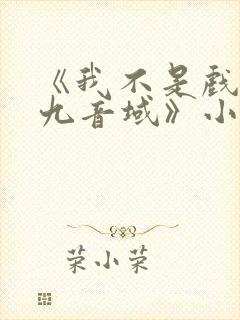 《我不是戏
九音域》小
荣小荣